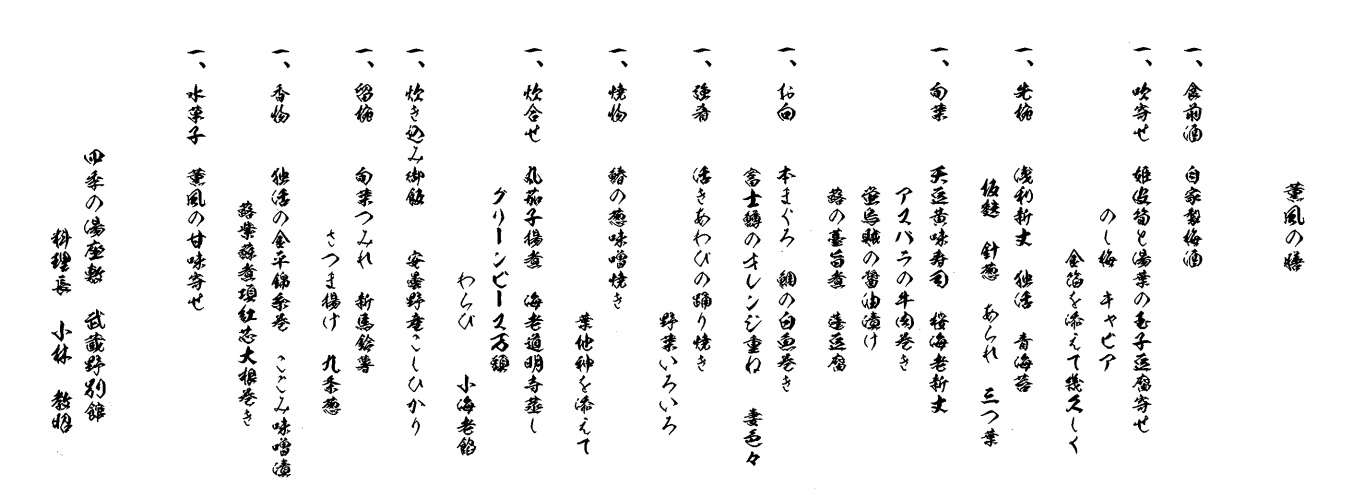 薫風の膳
一、食前酒　自家製梅酒
一、吹寄せ　姫皮筍と湯葉の玉子豆腐寄せ
のし梅　キャビア
金箔を添えて幾久しく
一、先椀　浅利新丈　独活　青海苔
板麩　針葱　あられ　三つ葉
一、旬菜　天豆黄味寿司　桜海老新丈
アスパラの牛肉巻き
蛍烏賊の醤油漬け
蕗の薹旨煮　蓬豆腐
一、お向　本まぐろ　鯛の白魚巻き
富士鱒のオレンジ重ね　妻色々
一、強肴　活きあわびの踊り焼き
野菜いろいろ
一、焼物　鰆の葱味噌焼き
葉地神を添えて
一、炊合せ　丸茄子揚煮　海老道明寺蒸し
グリーンピース万頭
わらび　小海老餡
一、炊き込み御飯　安曇野産こしひかり
一、留椀　旬菜つみれ　新馬鈴薯
さつま揚げ　九条葱
一、香物　独活の金平錦糸巻　こごみ味噌漬
蕗葉蘇煮項紅芯大根巻き
一、水菓子　薫風の甘味寄せ
四季の湯座敷　武蔵野別館
料理長　小林　教明